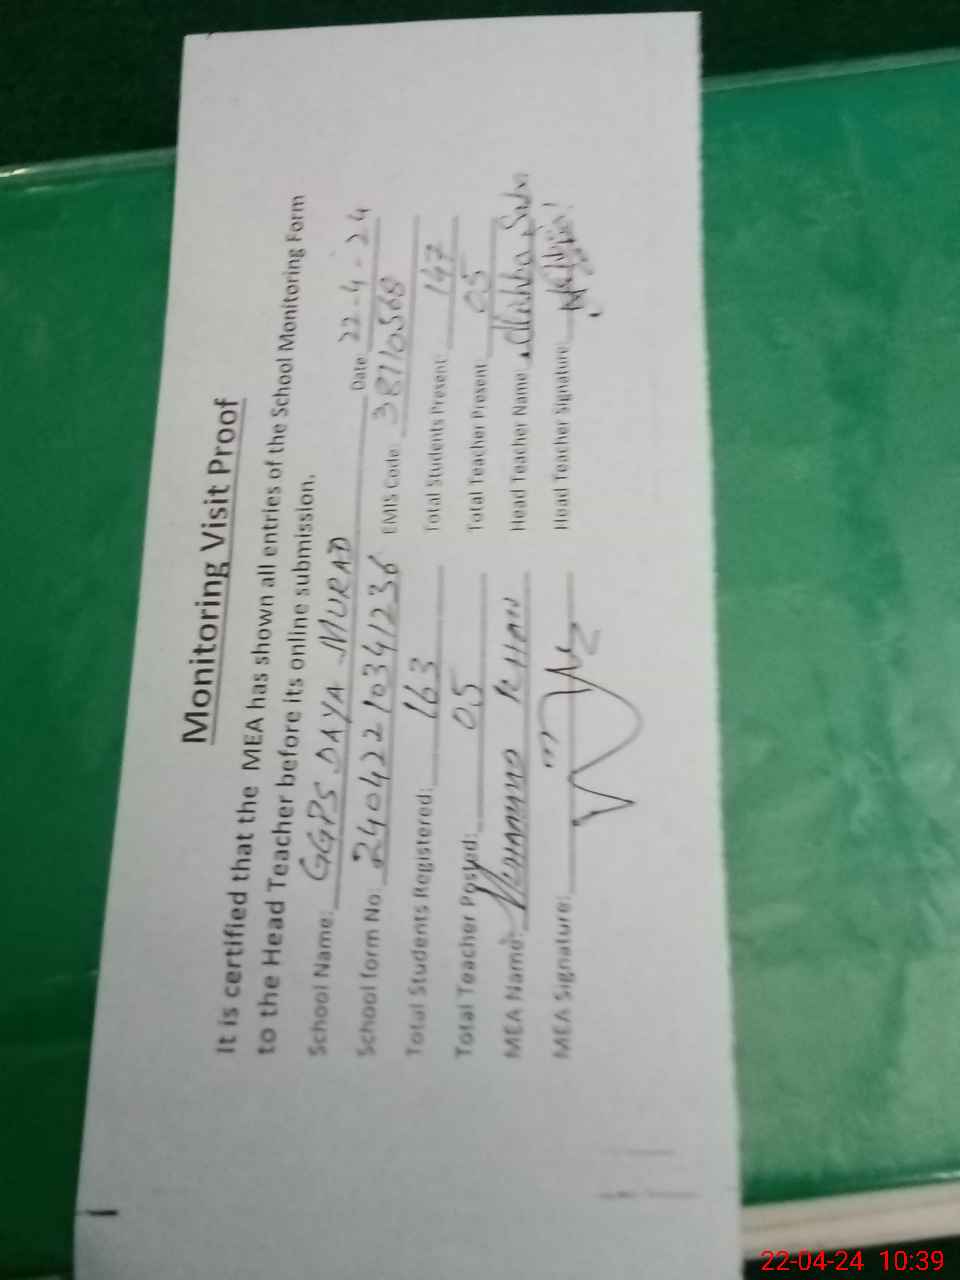 Monitoring Visit Proof
It is certified that the MEA has shown all entries of the School Monitoring Form
to the Head Teacher before its online submission.
School Name: GGPS DAYA MURAD Date 22-4-24
School form No. 24042210341236 EMIS Code: 38110568
Total Students Registered: 163 Total Students Present: 147
Total Teacher Posted: 05 Total Teacher Present: 05
MEA Name: MUHAMMAD KHAN Head Teacher Name:
MEA Signature: Head Teacher Signature:
22-04-24 10:39